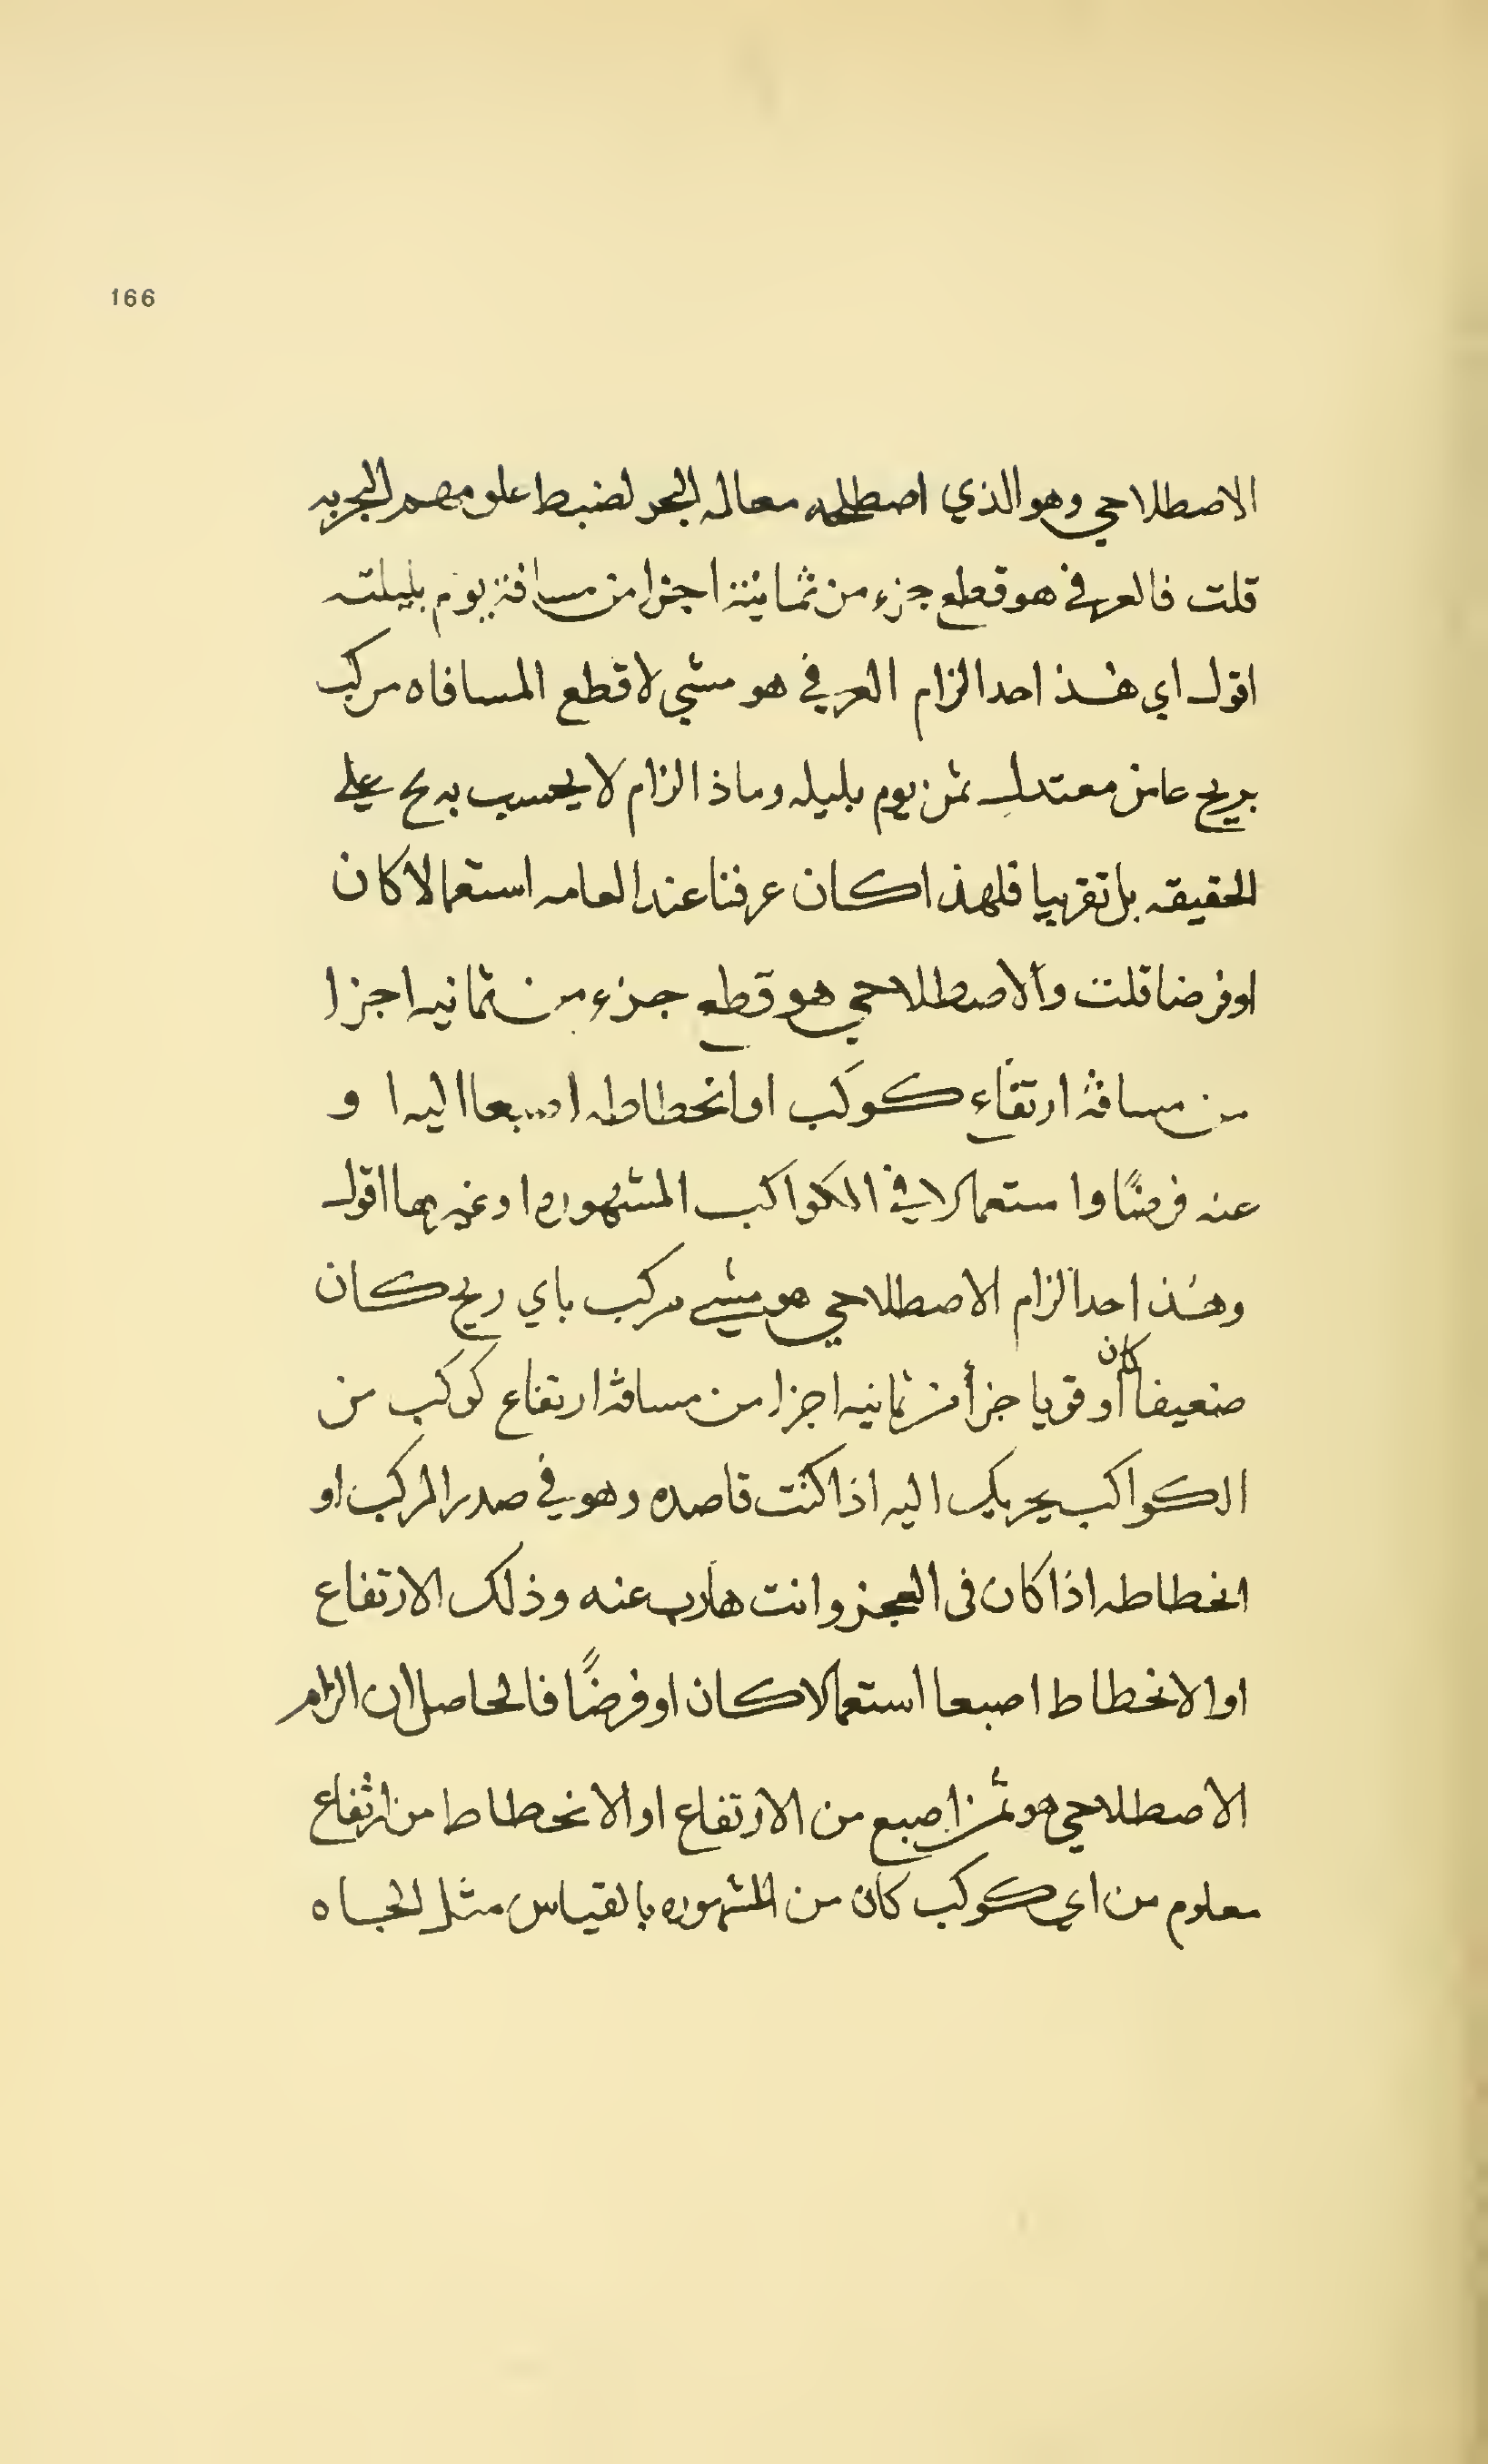 166
الاصطلاحي وهو الذي اصطلحه معالمه البحر لضبط علومهم البحريه
قلت فالعرفي هو قطع جزء من ثمانية اجزا من مسافة يوم بليلته
اقول اي هذا حد الزام العرفي هو مشي لا قطع المسافاه مركب
بريح معتدل ثمن يوم بليله وماذا الزام لا يحسب به علي
الحقيقه بل تقريبا فلهذا كان عرفنا عند العامه استعمالا كان
او فرضا قلت والاصطلاحي هو قطع جزء من ثمانيه اجزا
من مسافة ارتفاع كوكب او انحطاطه اصبعا اليه ا و
عنه فرضًا وا ستعمالا في الكواكب المشهوره او غيرها اقول
وهذا حد الزام الاصطلاحي هو مشي مركب باي ريح كان
ضعيفا كان أو قويا جزأ من ثمانيه اجزا من مسافة ارتفاع كوكب من
الكواكب يجريك اليه اذا كنت قاصده وهو في صدر المركب او
انحطاطه اذا كان فى العجز وانت هارب عنه وذلك الارتفاع
او الانحطاط اصبعا استعمالا كان او فرضًا فالحاصل ان الزام
الاصطلاحي هو ثمن اصبع من الارتفاع او الانحطاط من ارتفاع
معلوم من اي كوكب كان من المشهوره بالقياس مثل الجاه